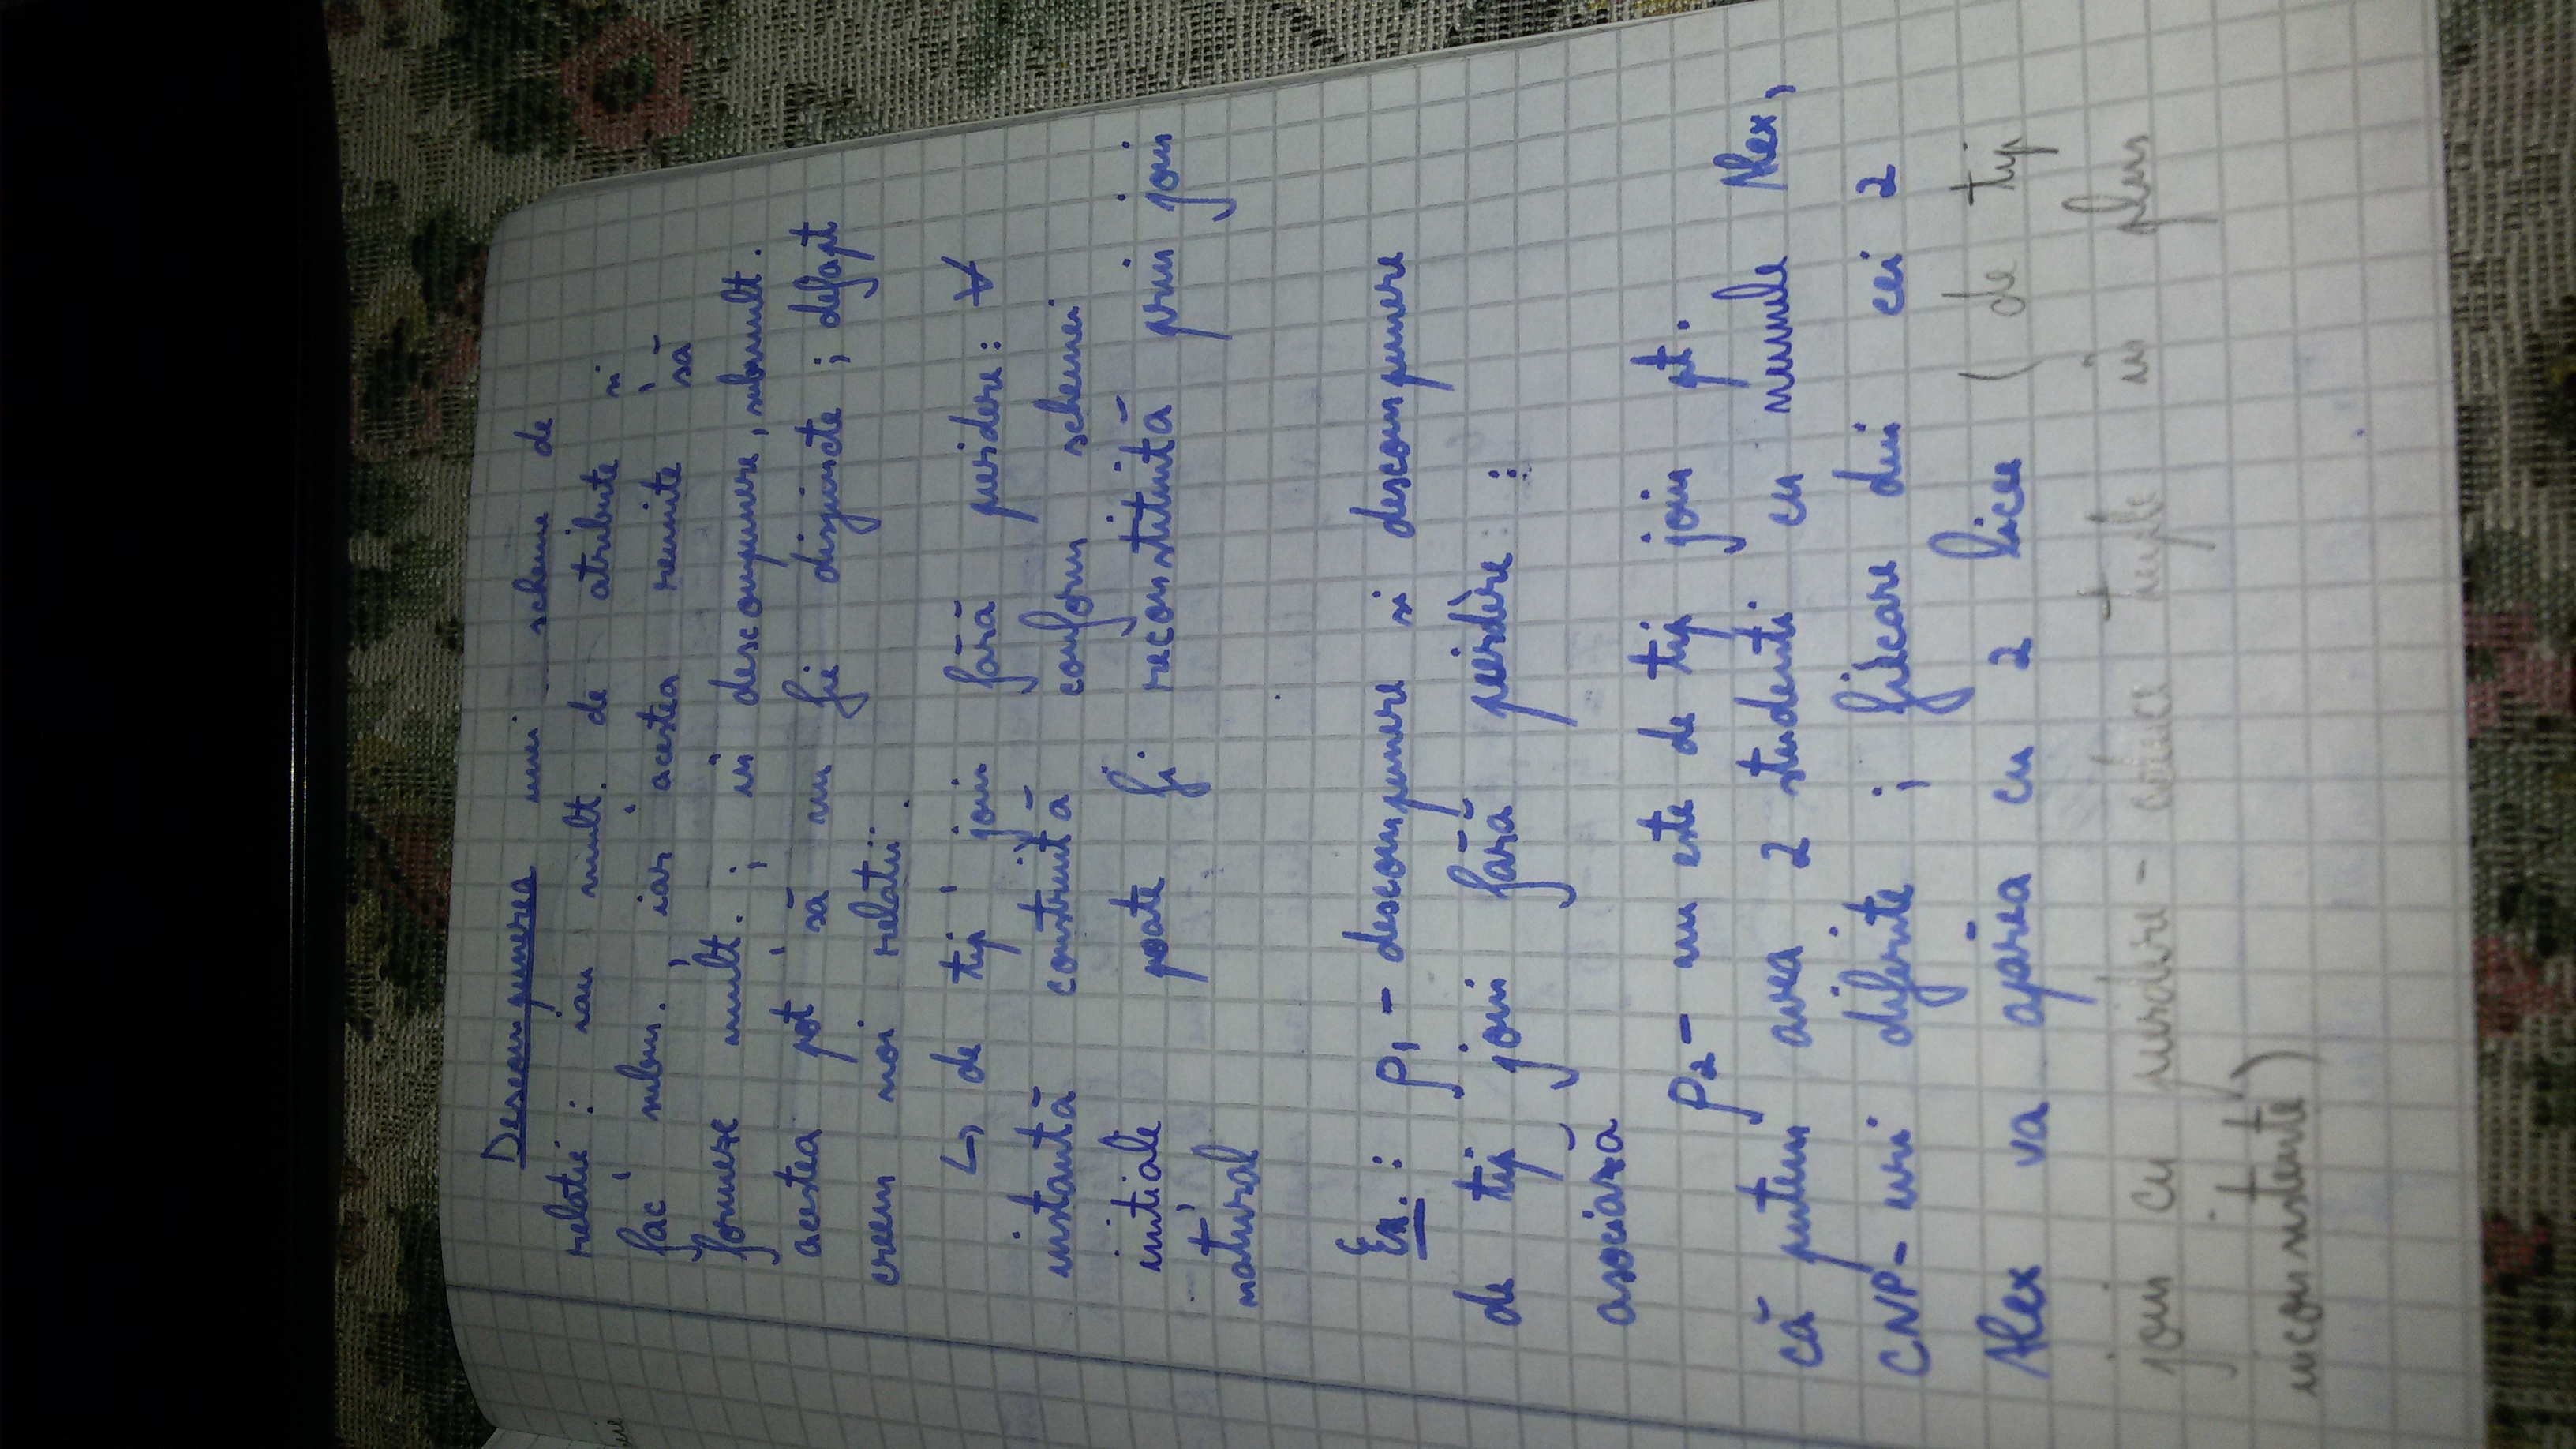 Descompunerea unei scheme de
relatii: iau mult. de atribute si
fac subm., iar acestea reunite să
formeze mult.; în descompunere, submult.
acestea pot să nu fie disjuncte; defapt
creem noi relatii.
↳ de tip join fără pierdere: ∀
instantă construită conform schemei
inițiale poate fi reconstituită prin join
natural
Ex.: ρ₁ - descompunere si descompunere
de tip join fără pierdere :
asociază
ρ₂ - nu este de tip join pt.
că putem avea 2 studenti cu numele Alex,
CNP-uri diferite ; fiecare din cei 2
Alex va apărea cu 2 licee ( de tip
join cu pierdere - aduce tuple în plus
inconsistente )